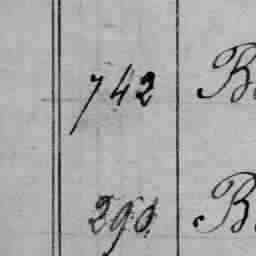 742 B
290 B